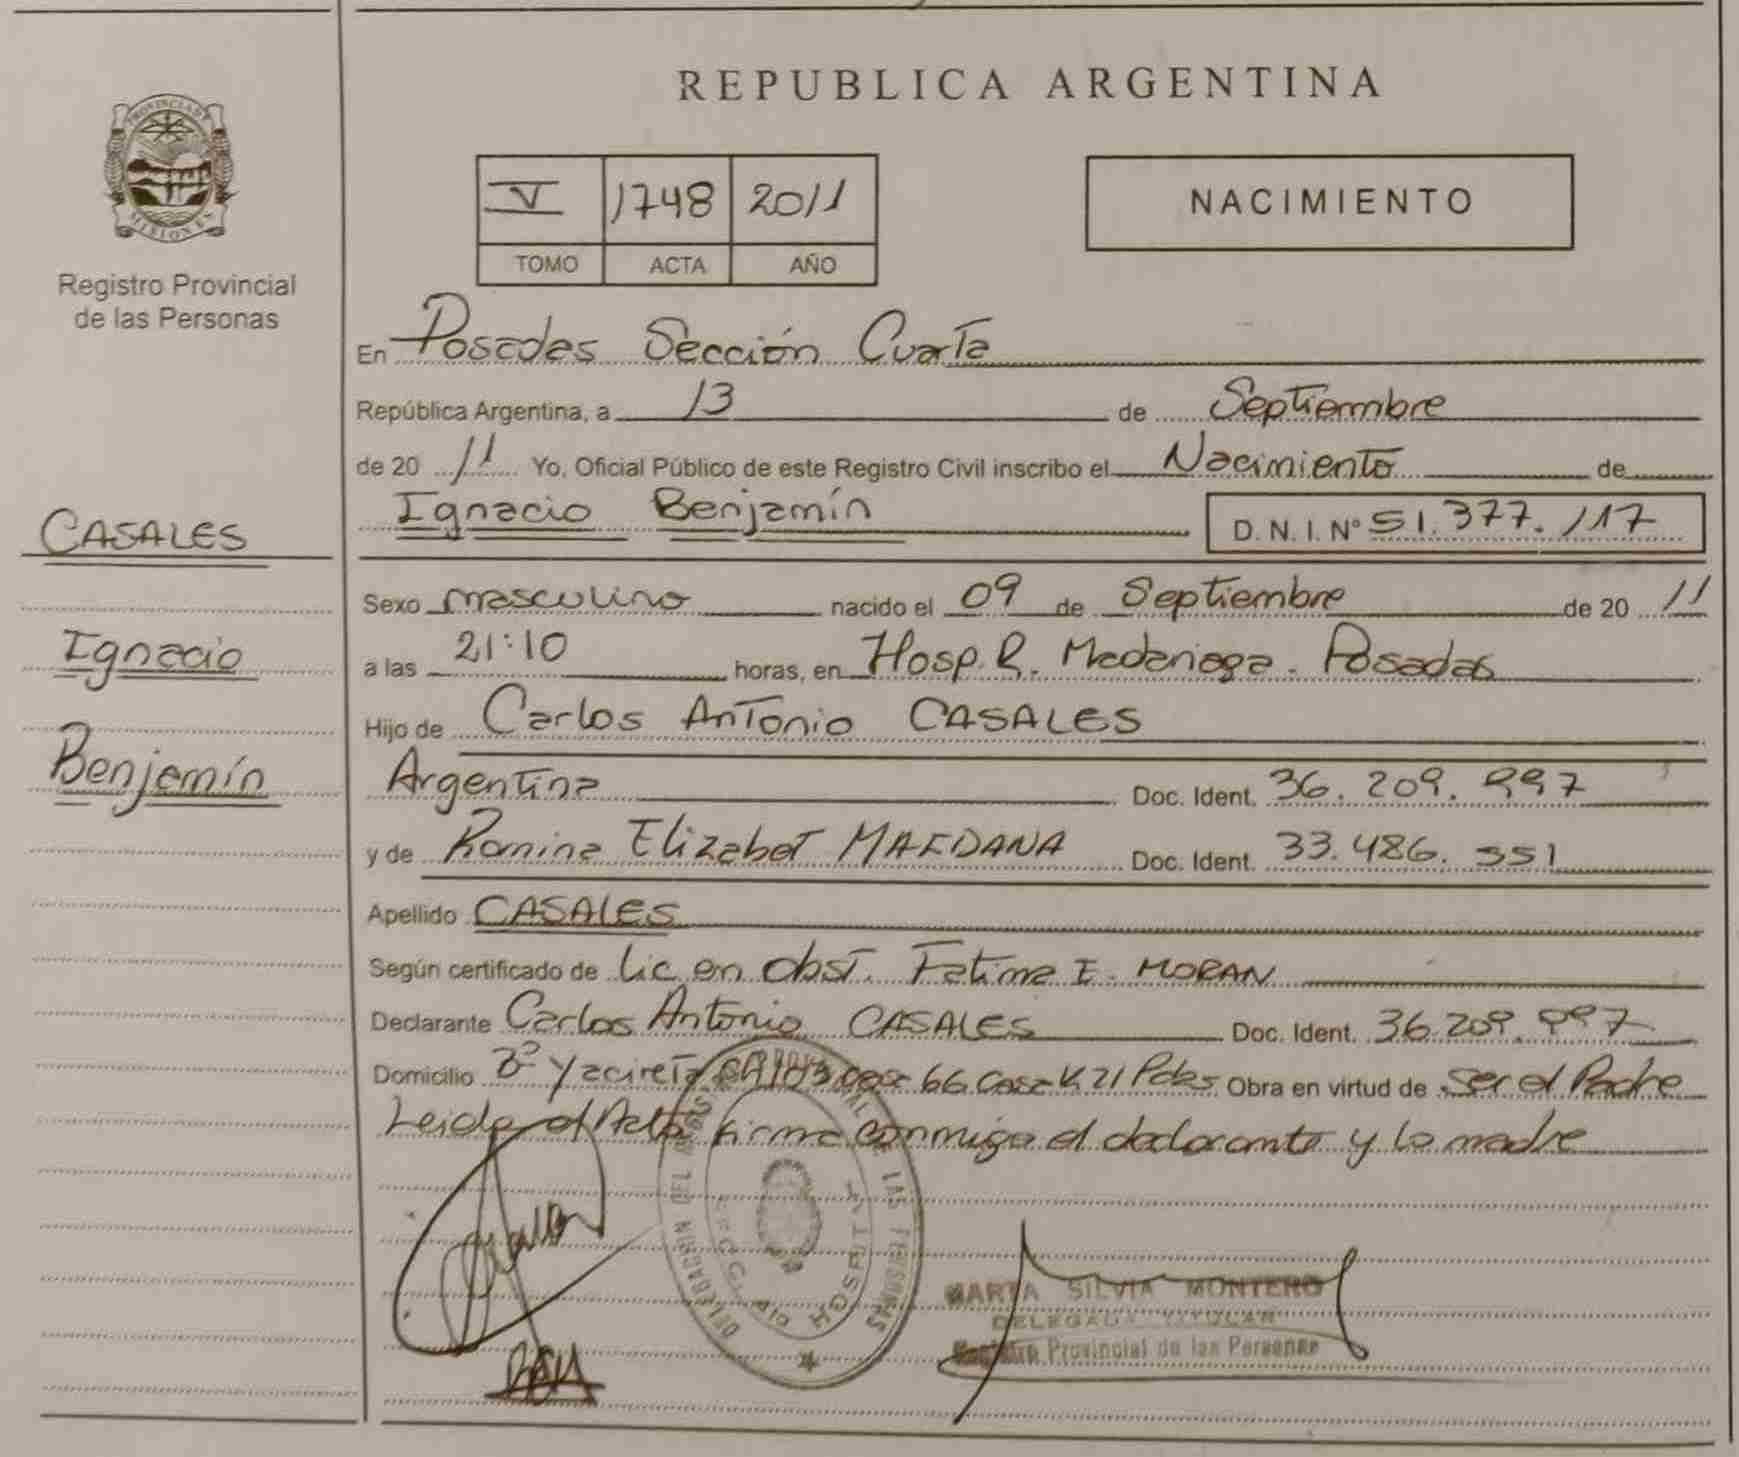 REPUBLICA ARGENTINA
PROVINCIA DE
MISIONES
Registro Provincial
de las Personas
V 1748 2011
TOMO ACTA AÑO
NACIMIENTO
En Posadas Sección Cuarta
República Argentina, a 13 de Septiembre
de 20 11 Yo, Oficial Público de este Registro Civil inscribo el Nacimiento de
Ignacio Benjamín D. N. I. Nº 51.377.117
CASALES
Ignacio
Benjamín
Sexo masculino nacido el 09 de Septiembre de 20 11
a las 21:10 horas, en Hosp. R. Madariaga. Posadas
Hijo de Carlos Antonio CASALES
Argentina Doc. Ident. 36.209.997
y de Romina Elizabet Doc. Ident. 33.486.551
Apellido CASALES
Según certificado de Lic en obst. Fatima E. MORAN
Declarante Carlos Antonio CASALES Doc. Ident. 36.209.997
Domicilio Bº Yacireta 66 Casa K 21 Pdas Obra en virtud de Ser el Padre
Leida el Acta firma conmigo el declarante y la madre
DELEGACION DEL REGISTRO PROVINCIAL DE LAS PERSONAS
HOSPITAL
MARTA SILVIA MONTERO
DELEGADA TITULAR
Registro Provincial de las Personas